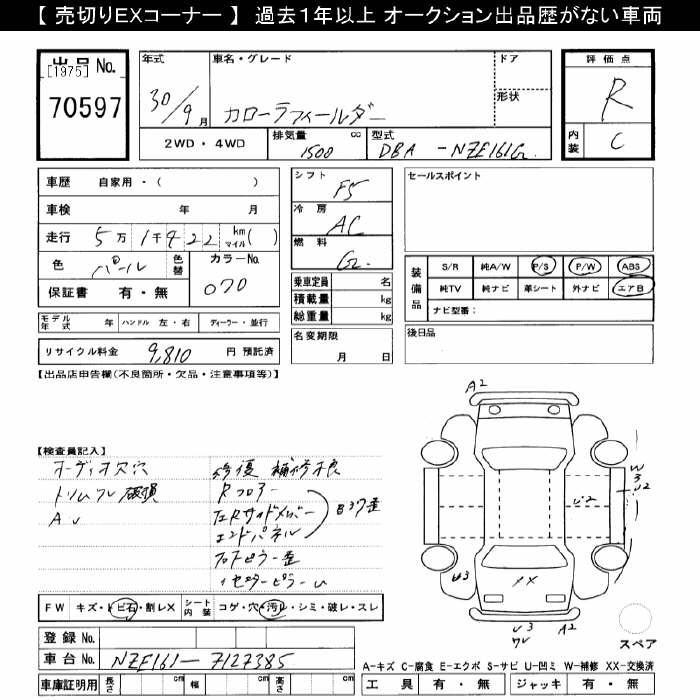 【 売切りEXコーナー 】 過去1年以上 オークション出品歴がない車両
出品 No.
[1975]
70597
年式
30/9月
車名・グレード
カローラフィールダー
ドア
形状
評価点
R
内装
C
2WD・4WD
排気量 cc
1500
型式
DBA -NZE161G
車歴 自家用・( )
車検 年 月
走行 5万 1千9 22 km マイル ( )
色 パール 色替
カラーNo.
070
保証書 有・無
シフト
F5
冷房
AC
燃料
G
乗車定員 名
積載量 kg
総重量 kg
名変期限
月 日
セールスポイント
装備品
S/R 純A/W P/S P/W ABS
純TV 純ナビ 革シート 外ナビ エアB
ナビ型番:
後日品
モデル年式 年 ハンドル 左・右 ディーラー・並行
リサイクル料金 9,810 円 預託済
【出品店申告欄(不良箇所・欠品・注意事項等)】
【検査員記入】
オーディオ欠穴
破損
修復 補修有
Rフロアー
エンドパネル
A2
U2
W3
U2
U3
XX
U3
A2
スペア
FW キズ・トビ石・割レX シート内装 コゲ・穴・汚レ・シミ・破レ・スレ
登録 No.
車台 No. NZE161-7127385
車庫証明用 長さ cm 幅 cm 高さ cm
A-キズ C-腐食 E-エクボ S-サビ U-凹ミ W-補修 XX-交換済
工具 有・無 ジャッキ 有・無